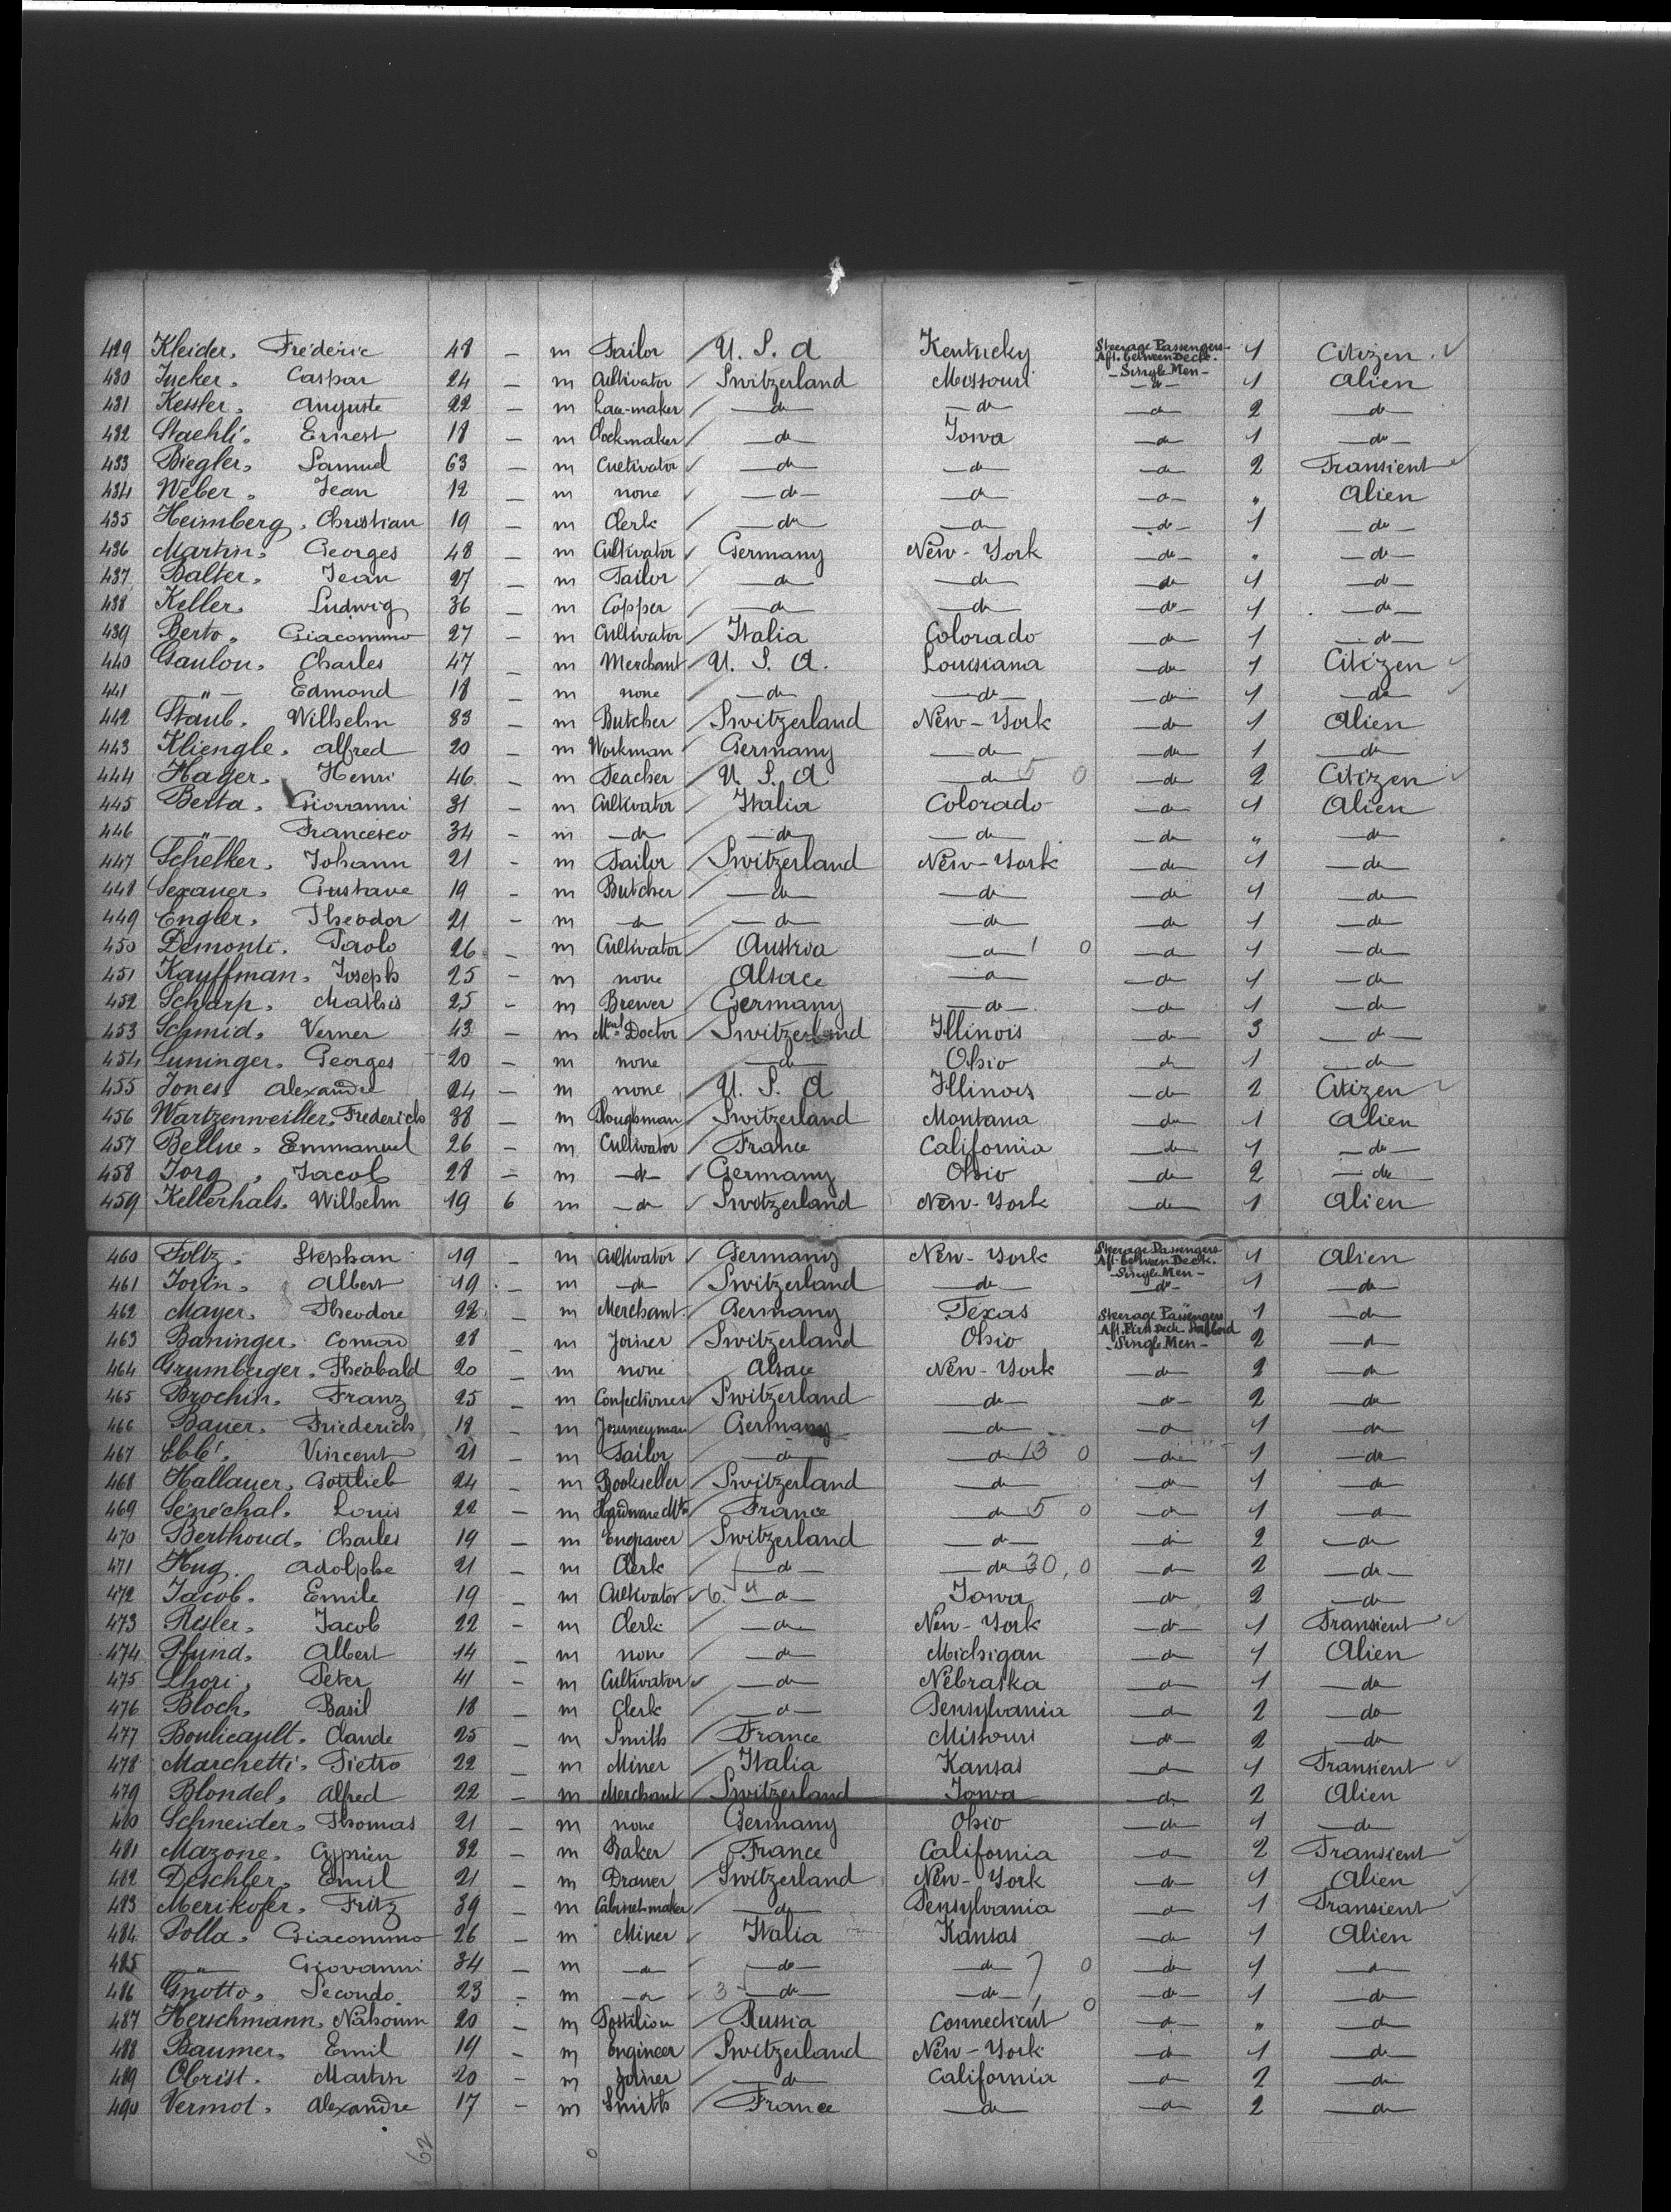 429 Kleider. Fréderic 48 – m Tailor U. S. A Kentucky Steerage Passengers Aft. between Deck. – Single Men – 1 Citizen
430 Jucker. Caspar 24 – m Cultivator Switzerland Missouri – d – 1 Alien
431 Kessler. Auguste 22 – m Lace-maker – do – do – do 2 – do –
432 Staehli. Ernest 18 – m Clockmaker – do Iowa – do 1 – do –
433 Biegler. Samuel 63 – m Cultivator – do – do – do 2 Transient
434 Weber. Jean 12 – m none – do – do – do " Alien
435 Heimberg. Christian 19 – m Clerk – do – do – do 1 – do –
436 Martin. Georges 48 – m Cultivator Germany New-York – do " – do –
437 Balter. Jean 27 – m Tailor – do – do – do 1 – do –
438 Keller. Ludwig 36 – m Copper – do – do – do 1 – do –
439 Berto. Giacommo 27 – m Cultivator Italia Colorado – do 1 – do –
440 Gaulon. Charles 47 – m Merchant U. S. A. Louisiana – do 1 Citizen
441 – " – Edmond 18 – m none – do – do – do 1 – do
442 Staub. Wilhelm 33 – m Butcher Switzerland New-York – do 1 Alien
443 Kliengle. Alfred 20 – m Workman Germany – do – do 1 – do
444 Hager. Henri 46 – m Teacher U. S. A – do 5 0 – do 2 Citizen
445 Berta. Giovanni 31 – m Cultivator Italia Colorado – do 1 Alien
446 – " – Francesco 34 – m – do – do – do – do " – do
447 Schelker. Johann 21 – m Tailor Switzerland New-York – do 1 – do
448 Sexauer. Gustave 19 – m Butcher – do – do – do 1 – do
449 Engler. Theodor 21 – m – do – do – do – do 1 – do
450 Demonti. Paolo 26 – m Cultivator Austria – do 1 0 – do 1 – do
451 Kauffman. Joseph 25 – m none Alsace – do – do 1 – do
452 Scharp. Mathis 25 – m Brewer Germany – do – do 1 – do
453 Schmid. Verner 43 – m Doctor Switzerland Illinois – do 3 – do –
454 Luninger. Georges 20 – m none – do Ohio – do 1 – do
455 Jones. Alexandre 24 – m none U. S. A Illinois – do 2 Citizen
456 Wartzenweiller. Frederich 38 – m Ploughman Switzerland Montana – do 1 Alien
457 Bellue. Emmanuel 26 – m Cultivator France California – do 1 – do –
458 Jorg. Jacob 28 – m – do – Germany Ohio – do 2 – do
459 Kellerhals. Wilhelm 19 6 m – do Switzerland New-York – do 1 Alien
460 Foltz. Stephan 19 – m Cultivator Germany New-York Steerage Passengers Aft. between Deck. – Single Men – 1 Alien
461 Jorin. Albert 19 – m – do Switzerland – do – do – 1 – do
462 Mayer. Theodore 22 – m Merchant Germany Texas Steerage Passengers 1 – do
463 Baninger. Conrad 28 – m Joiner Switzerland Ohio Aft. First Deck. – Single Men – 2 – do
464 Grumberger. Théobald 20 – m none Alsace New-York – do 2 – do
465 Brochin. Franz 25 – m Confectioner Switzerland – do – do 2 – do
466 Bauer. Friederich 18 – m Journeyman Germany – do – do 1 – do
467 Eblé. Vincent 21 – m Tailor – do – do 13 0 – do 1 – do
468 Hallauer. Gottlieb 24 – m Bookseller Switzerland – do – do 1 – do
469 Sénéchal. Louis 22 – m Hardware France – do 5 0 – do 1 – do
470 Berthoud. Charles 19 – m Engraver Switzerland – do – do 2 – do
471 Hug. Adolphe 21 – m Clerk – do – do 30, 0 – do 2 – do –
472 Jacob. Emile 19 – m Cultivator – do Iowa – do 2 – do
473 Risler. Jacob 22 – m Clerk – do New-York – do 1 Transient
474 Pfund. Albert 14 – m none – do Michigan – do 1 Alien
475 Lhori. Peter 41 – m Cultivator – do Nébraska – do 1 – do
476 Bloch. Basil 18 – m Clerk – do Pensylvania – do 2 – do
477 Boulicault. Claude 25 – m Smith France Missouri – do 2 – do
478 Marchetti. Pietro 22 – m Miner Italia Kansas – do 1 Transient
479 Blondel. Alfred 22 – m Merchant Switzerland Iowa – do 2 Alien
480 Schneider. Thomas 21 – m none Germany Ohio – do 1 – do
481 Mazone. Cyprien 32 – m Baker France California – do 2 Transient
482 Deschler. Emil 21 – m Drawer Switzerland New-York – do 1 Alien
483 Merikofer. Fritz 39 – m Cabinet-maker – do Pensylvania – do 1 Transient
484 Polla. Giacommo 26 – m Miner Italia Kansas – do 1 Alien
485 – " – Giovanni 34 – m – do – do – do 7 0 – do 1 – do
486 Gnotto. Secondo 23 – m – do 3 – do – do 0 – do 1 – do
487 Herschmann. Nahoum 20 – m Postilion Russia Connecticut – do " – do
488 Baumer. Emil 19 – m Engineer Switzerland New-York – do 1 – do
489 Obrist. Martin 20 – m Joiner – do California – do 2 – do
490 Vermot. Alexandre 17 – m Smith France – do – do 2 – do
62